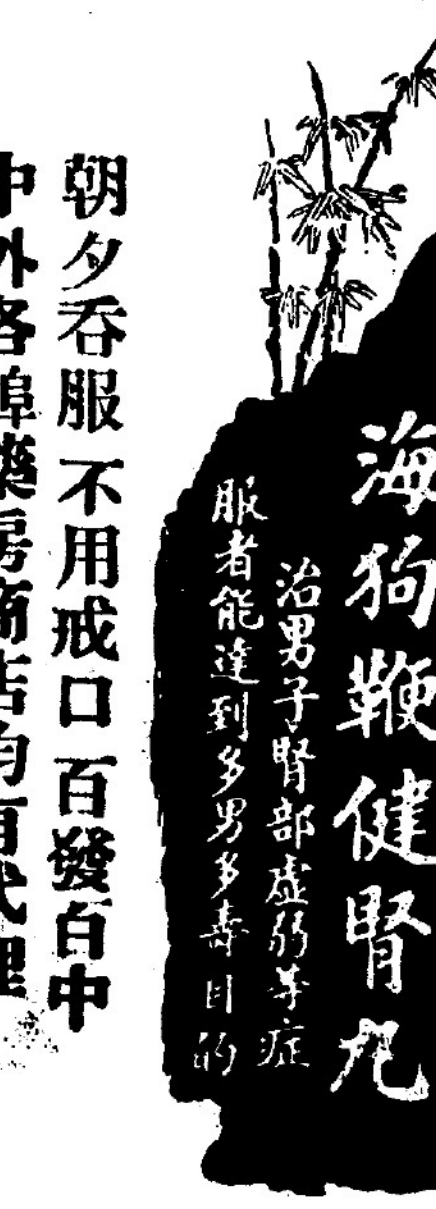 海狗鞭健腎丸
治男子腎部虛弱等症
服者能達到多男多壽目的
朝夕吞服 不用戒口 百發百中
中外各埠藥房商店均有代理